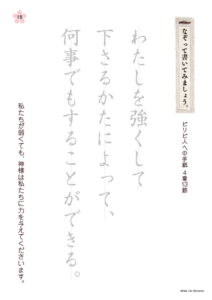 16
なぞって書いてみましょう。
ピリピ人への手紙 4章13節
わたしを強くして
下さるかたによって、
何事でもすることができる。
私たちが弱くても、神様は私たちに力を与えてくださいます。